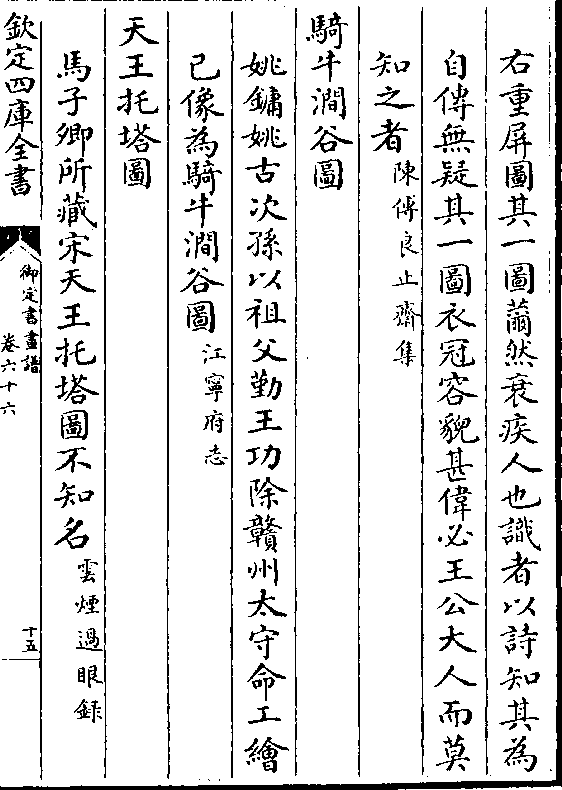 右重屏圖其一圖薾然衰疾人也識者以詩知其為
自傳無疑其一圖衣冠容貌甚偉必王公大人而莫
知之者陳傅良止齋集
騎牛澗谷圖
姚鏞姚古次孫以祖父勤王功除贛州太守命工繪
已像為騎牛澗谷圖江寧府志
天王托塔圖
馬子卿所藏宋天王托塔圖不知名雲煙過眼録
欽定四庫全書
御定書畫譜
卷六十六
十五